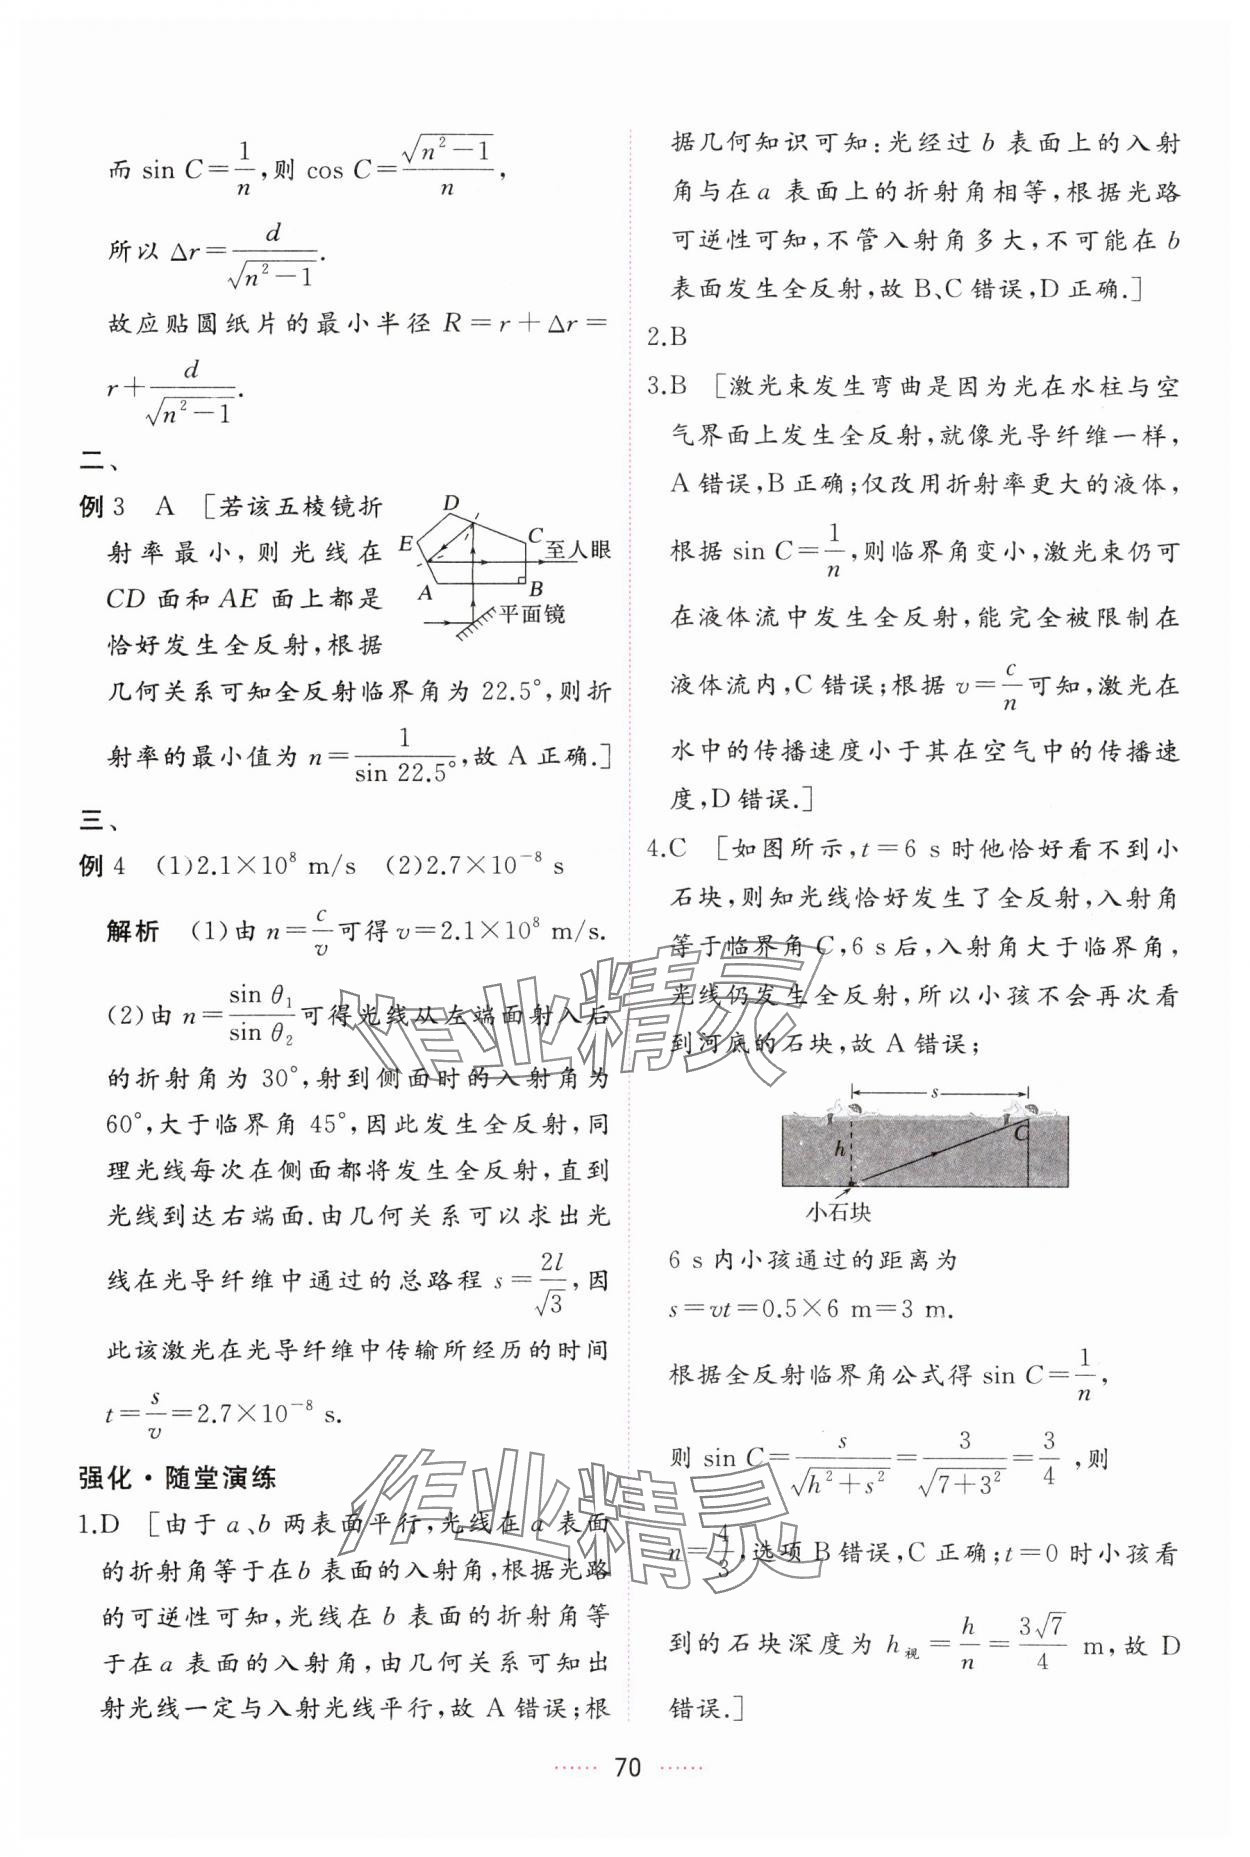 而 sin C=1/n,则 cos C=√(n²-1)/n,
所以 Δr=d/√(n²-1).
故应贴圆纸片的最小半径 R=r+Δr=
r+d/√(n²-1).
二、
例 3 A [若该五棱镜折
射率最小,则光线在
CD 面和 AE 面上都是
恰好发生全反射,根据
D
C
E
至人眼
A
B
平面镜
几何关系可知全反射临界角为 22.5°,则折
射率的最小值为 n=1/sin 22.5°,故 A 正确.]
三、
例 4 (1)2.1×10⁸ m/s (2)2.7×10⁻⁸ s
解析 (1)由 n=c/v可得 v=2.1×10⁸ m/s.
(2)由 n=sin θ₁/sin θ₂可得光线从左端面射入后
的折射角为 30°,射到侧面时的入射角为
60°,大于临界角 45°,因此发生全反射,同
理光线每次在侧面都将发生全反射,直到
光线到达右端面.由几何关系可以求出光
线在光导纤维中通过的总路程 s=2l/√3,因
此该激光在光导纤维中传输所经历的时间
t=s/v=2.7×10⁻⁸ s.
强化·随堂演练
1.D [由于 a、b 两表面平行,光线在 a 表面
的折射角等于在b 表面的入射角,根据光路
的可逆性可知,光线在 b 表面的折射角等
于在a 表面的入射角,由几何关系可知出
射光线一定与入射光线平行,故 A 错误;根
据几何知识可知:光经过 b 表面上的入射
角与在 a 表面上的折射角相等,根据光路
可逆性可知,不管入射角多大,不可能在 b
表面发生全反射,故 B、C 错误,D 正确.]
2.B
3.B [激光束发生弯曲是因为光在水柱与空
气界面上发生全反射,就像光导纤维一样,
A 错误,B 正确;仅改用折射率更大的液体,
根据 sin C=1/n,则临界角变小,激光束仍可
在液体流中发生全反射,能完全被限制在
液体流内,C 错误;根据 v=c/n可知,激光在
水中的传播速度小于其在空气中的传播速
度,D 错误.]
4.C [如图所示,t=6 s 时他恰好看不到小
石块,则知光线恰好发生了全反射,入射角
等于临界角 C,6 s 后,入射角大于临界角,
光线仍发生全反射,所以小孩不会再次看
到河底的石块,故 A 错误;
s
h
C
小石块
6 s 内小孩通过的距离为
s=vt=0.5×6 m=3 m.
根据全反射临界角公式得 sin C=1/n,
则 sin C=s/√(h²+s²)=3/√(7+3²)=3/4,则
n=4/3,选项 B 错误,C 正确;t=0 时小孩看
到的石块深度为 h视=h/n=3√7/4 m,故 D
错误.]
作业精灵
作业精灵
70